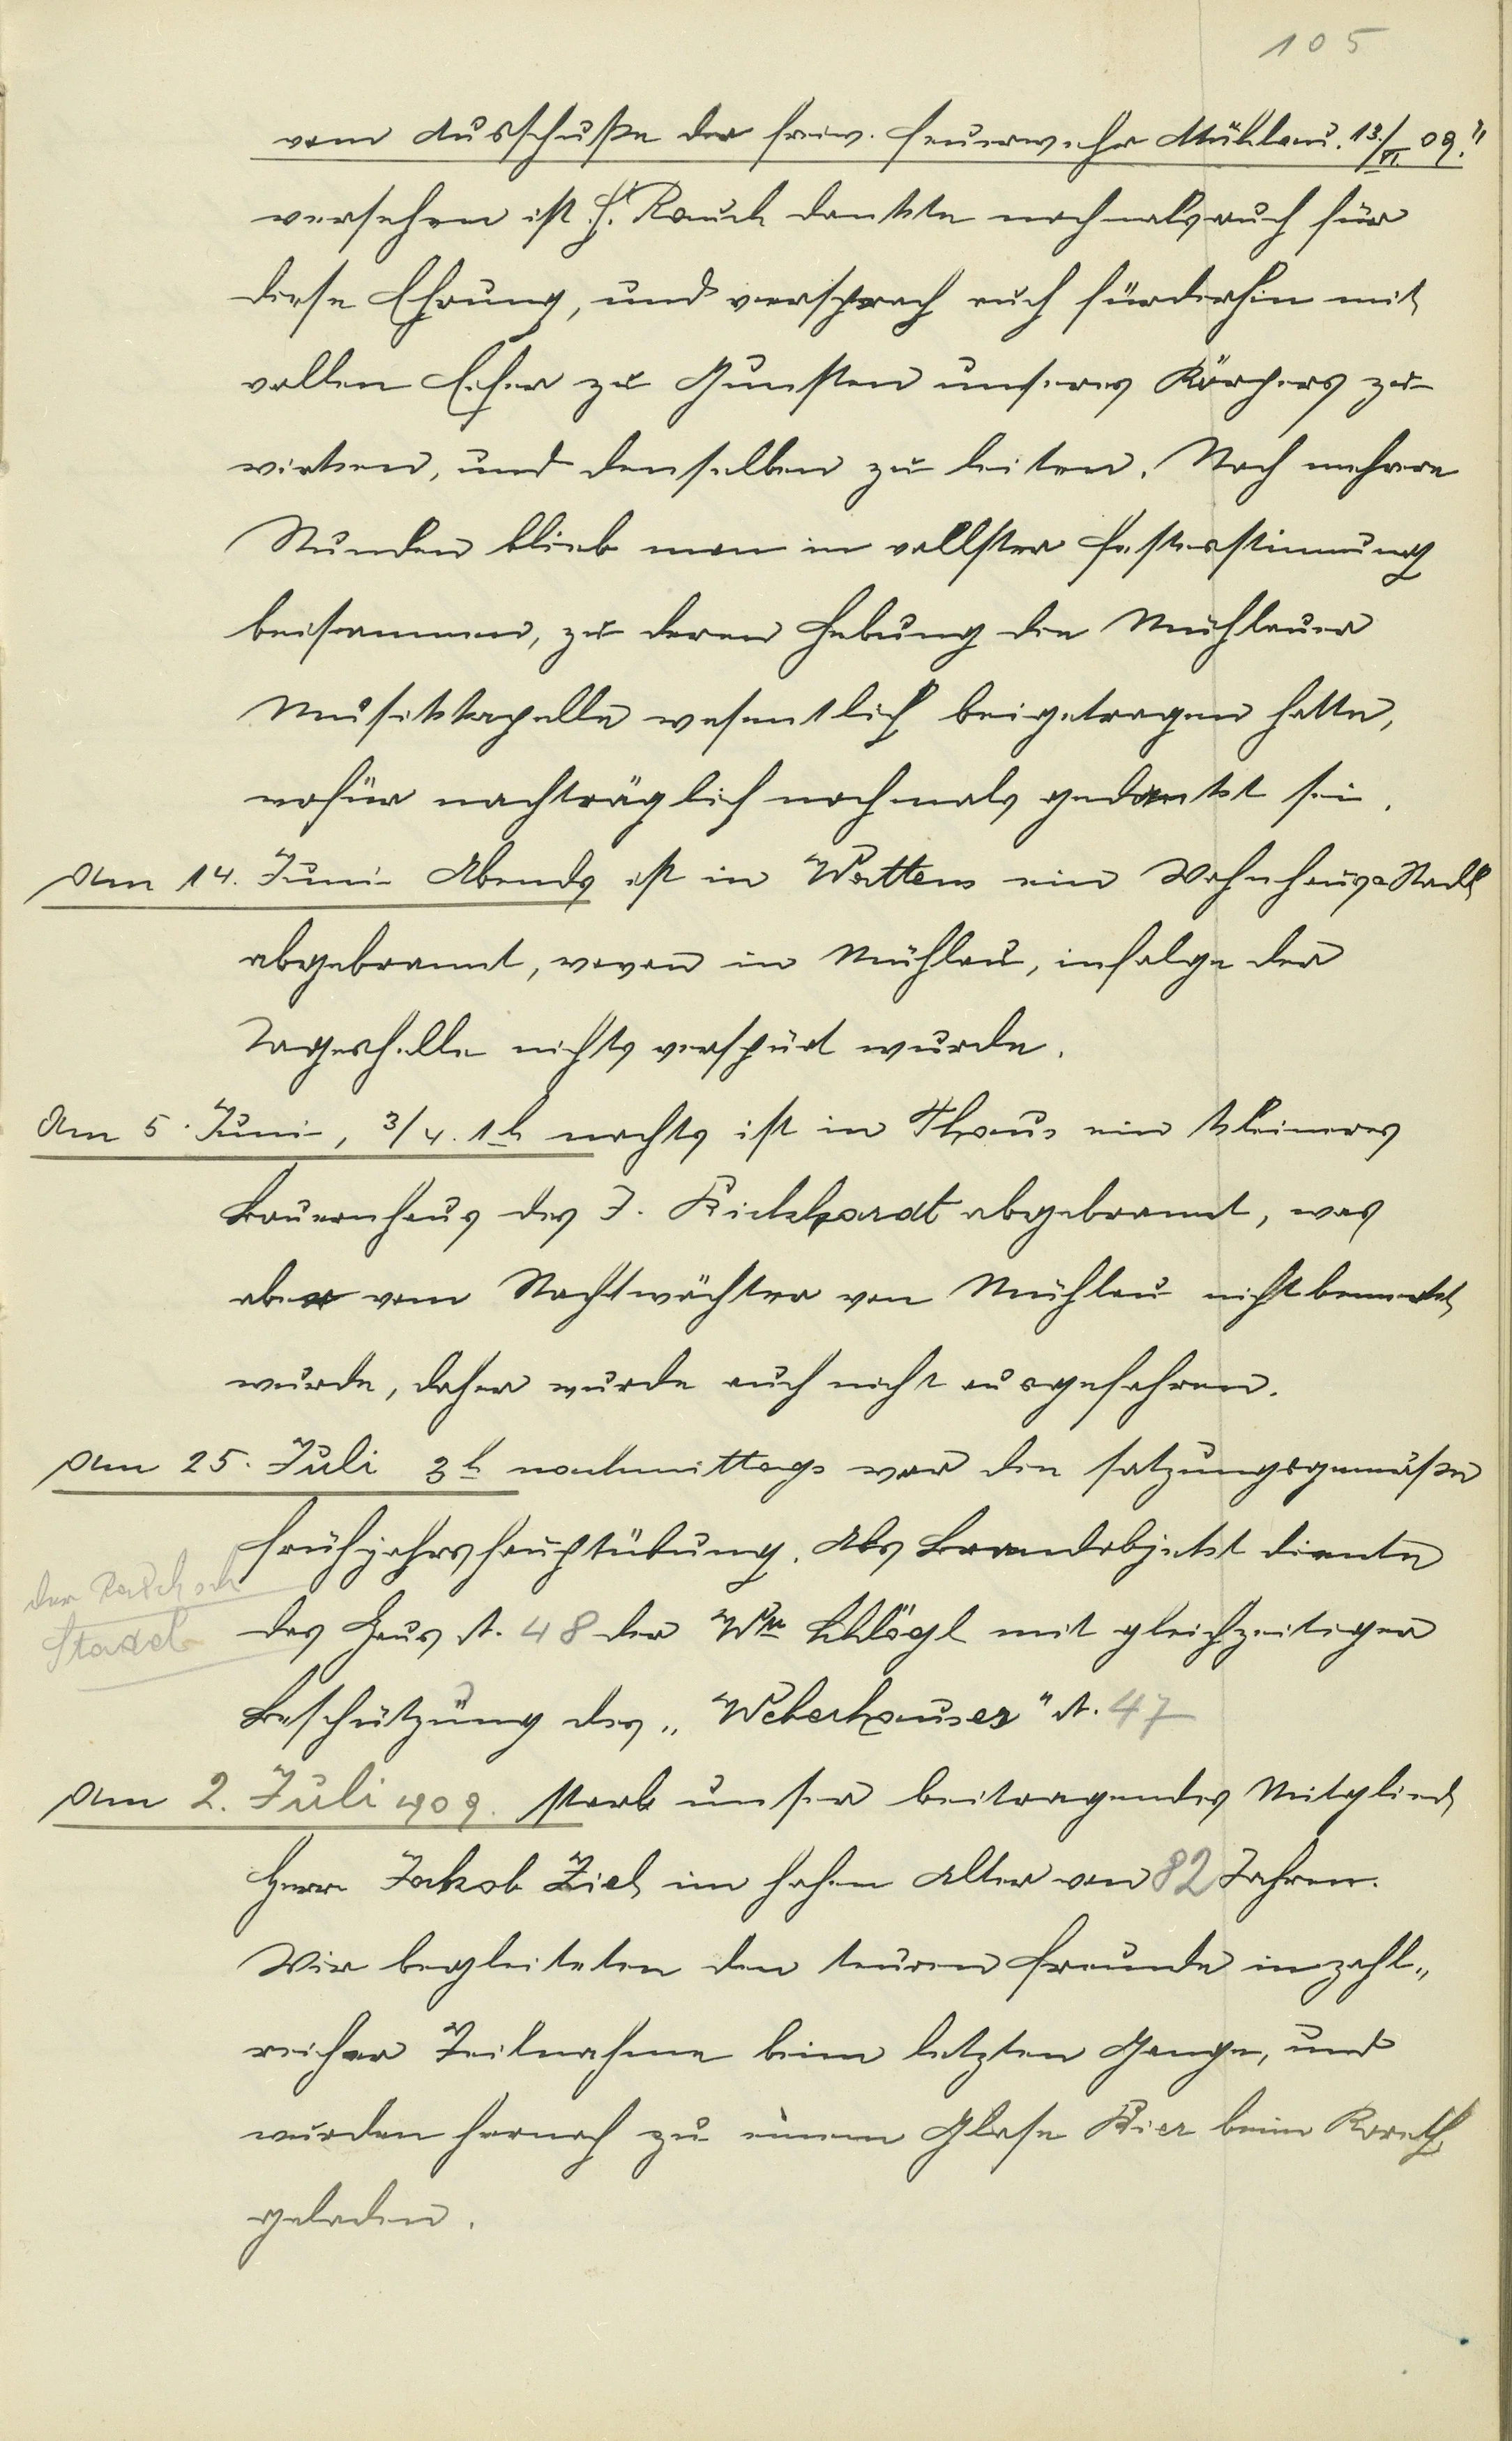 105
vom Ausschuße der freiw. Feuerwehr Mühlau. 13./VI. 09."
versehen ist. H. Rauch dankte nochmals auch für
diese Ehrung, und versprach auch fürderhin mit
vollen Eifer zu Gunsten unseres Körpers zu
wirken, und denselben zu leiten. Noch mehrere
Stunden blieb man in vollster Festesstimmung
beisammen, zu deren Hebung die Mühlauer
Musikkapelle wesentlich beigetragen hatte,
wofür nachträglich nochmals gedankt sei.
Am 14. Juni Abends ist in Wattens ein Wohnhaus Stadl
abgebrannt, wovon in Mühlau, infolge der
Tageshelle nichts verspürt wurde.
Am 5. Juni, 3/4. 1h nachts ist in Thaur ein kleineres
Bauernhaus des J. abgebrannt, was
aber vom Nachtwächter von Mühlau nicht bemerkt
wurde, daher wurde auch nicht ausgefahren.
Am 25. Juli 3h nachmittags war die satzungsgemäße
Frühjahrshauptübung. Als Brandobjekt diente
der
Stadel
das Haus N. 48 der Ww Schlögl mit gleichzeitiger
Beschützung des „Weberhauses" N. 47
Am 2. Juli 1909. starb unser beitragendes Mitglied
Herr Jakob Ziel im hohen Alter von 82 Jahren.
Wir begleiteten den teuren Freunde in zahl„
reicher Teilnahme beim letzten Gange, und
wurden hernach zu einem Glase Bier beim Koreth
geladen.